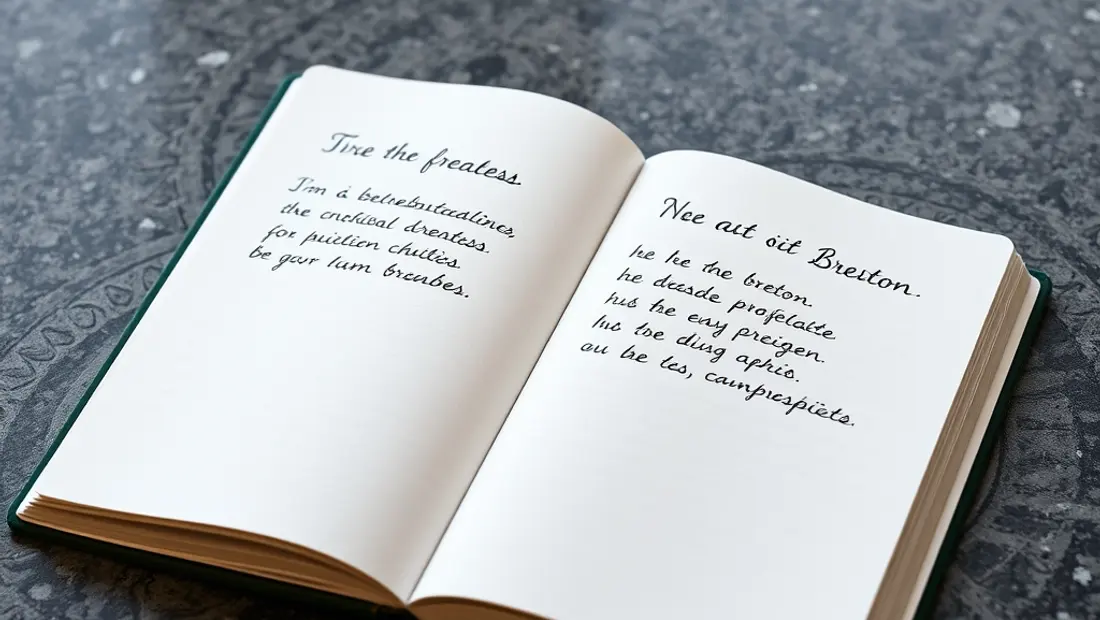 Tire the freatess
I'm a betrebutcadlines,
the enchibal dreatess.
for puilien chullies
be gour lum brcunbes.
Nee aut oit Breiton.
he he the breton.
he decsde profelatte
hus the eny preigen.
hus toe diug aphis.
au be tes, caumpuspiets.